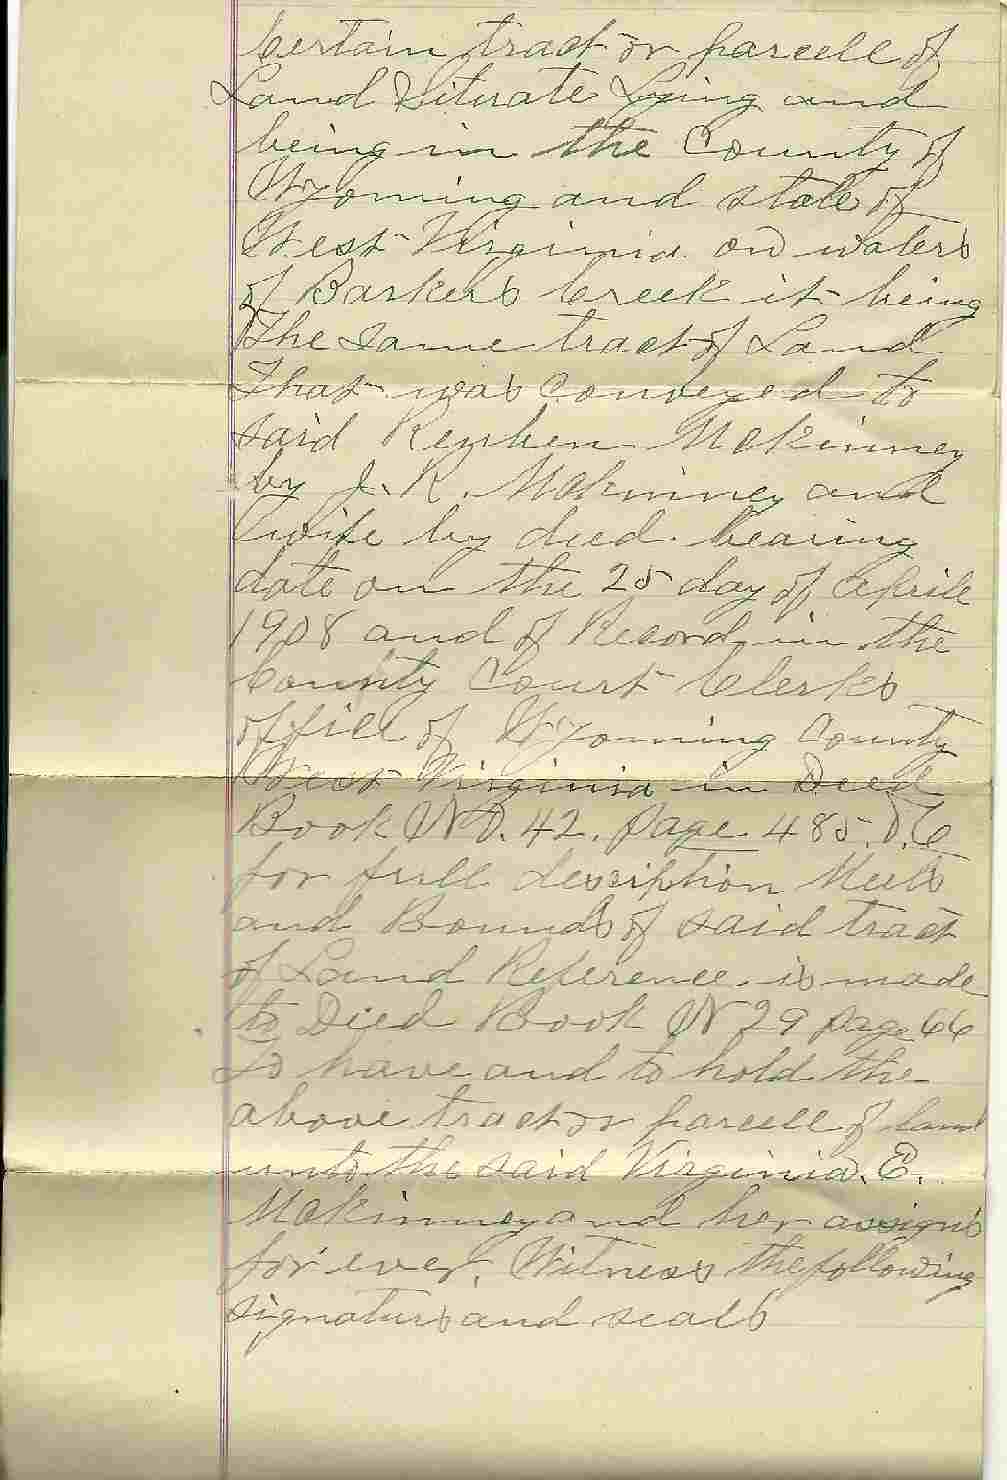 Certain tract or parcell of
Land Situate Lying and
being in the County of
Wyoming and state of
West Virginia on waters
of Barkers Creek it being
The same tract of Land
That was conveyed to
said Reuben McKinney
by J. R. McKinney and
wife by deed bearing
date on the 25 day of Aprile
1908 and of Record in the
County Court Clerks
office of Wyoming County
West Virginia in Deed
Book No. 42. page 485.
for full desciption Meets
and Bounds of said tract
of Land Reference is made
to Died Book N 29 page 66
To have and to hold the
above tract or parcell of land
unto the said Virginia. E.
McKinney and her assigns
for ever. Witness the following
signaturs and seals